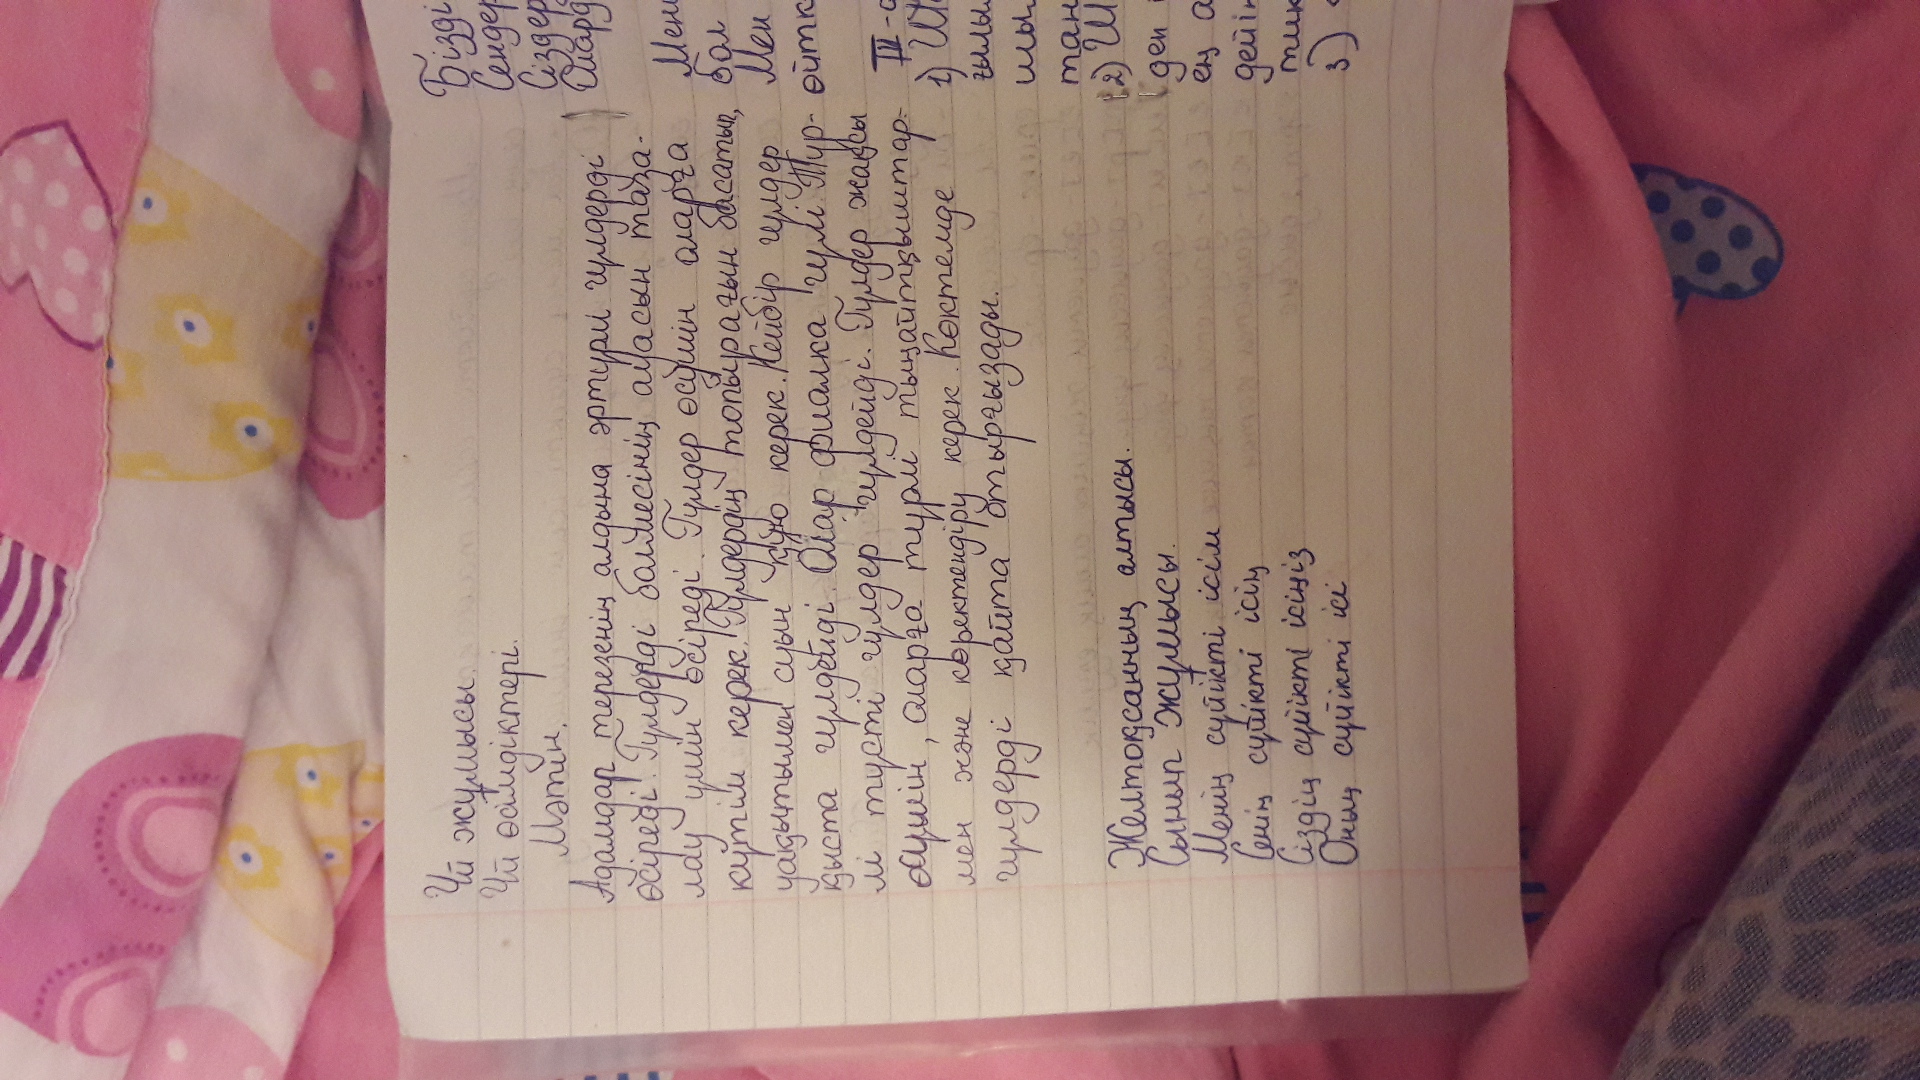 Үй жұмысы.
Үй өсімдіктері.
Мәтін.
Адамдар терезенің алдына әртүрлі гүлдерді
өсіреді. Гүлдерді бөлмесінің ауасын таза-
лау үшін өсіреді. Гүлдер өсушін оларға
күтім керек. Гүлдердің топырағын басатып,
уақытымен суын құю керек. Кейбір гүлдер
қыста гүлдейді. Олар фиалка гүлі. Түр-
лі түсті гүлдер гүлдейді. Гүлдер жақсы
өсушін, оларға түрлі тыңайтқыштар-
мен және қоректендіру керек. Көктемде
гүлдерді қайта отырғызады.
Желтоқсанның алтысы.
Сынып жұмысы.
Менің сүйікті ісім
Сенің сүйікті ісің
Сіздің сүйікті ісіңіз
Оның сүйікті ісі
Бізді
Сендер
Сіздер
Олард
Мені
бол
Мен
өйтк
III-
1)
ғылы
шы
тан
2) Ш
ден
ең а
дейін
тик
3)